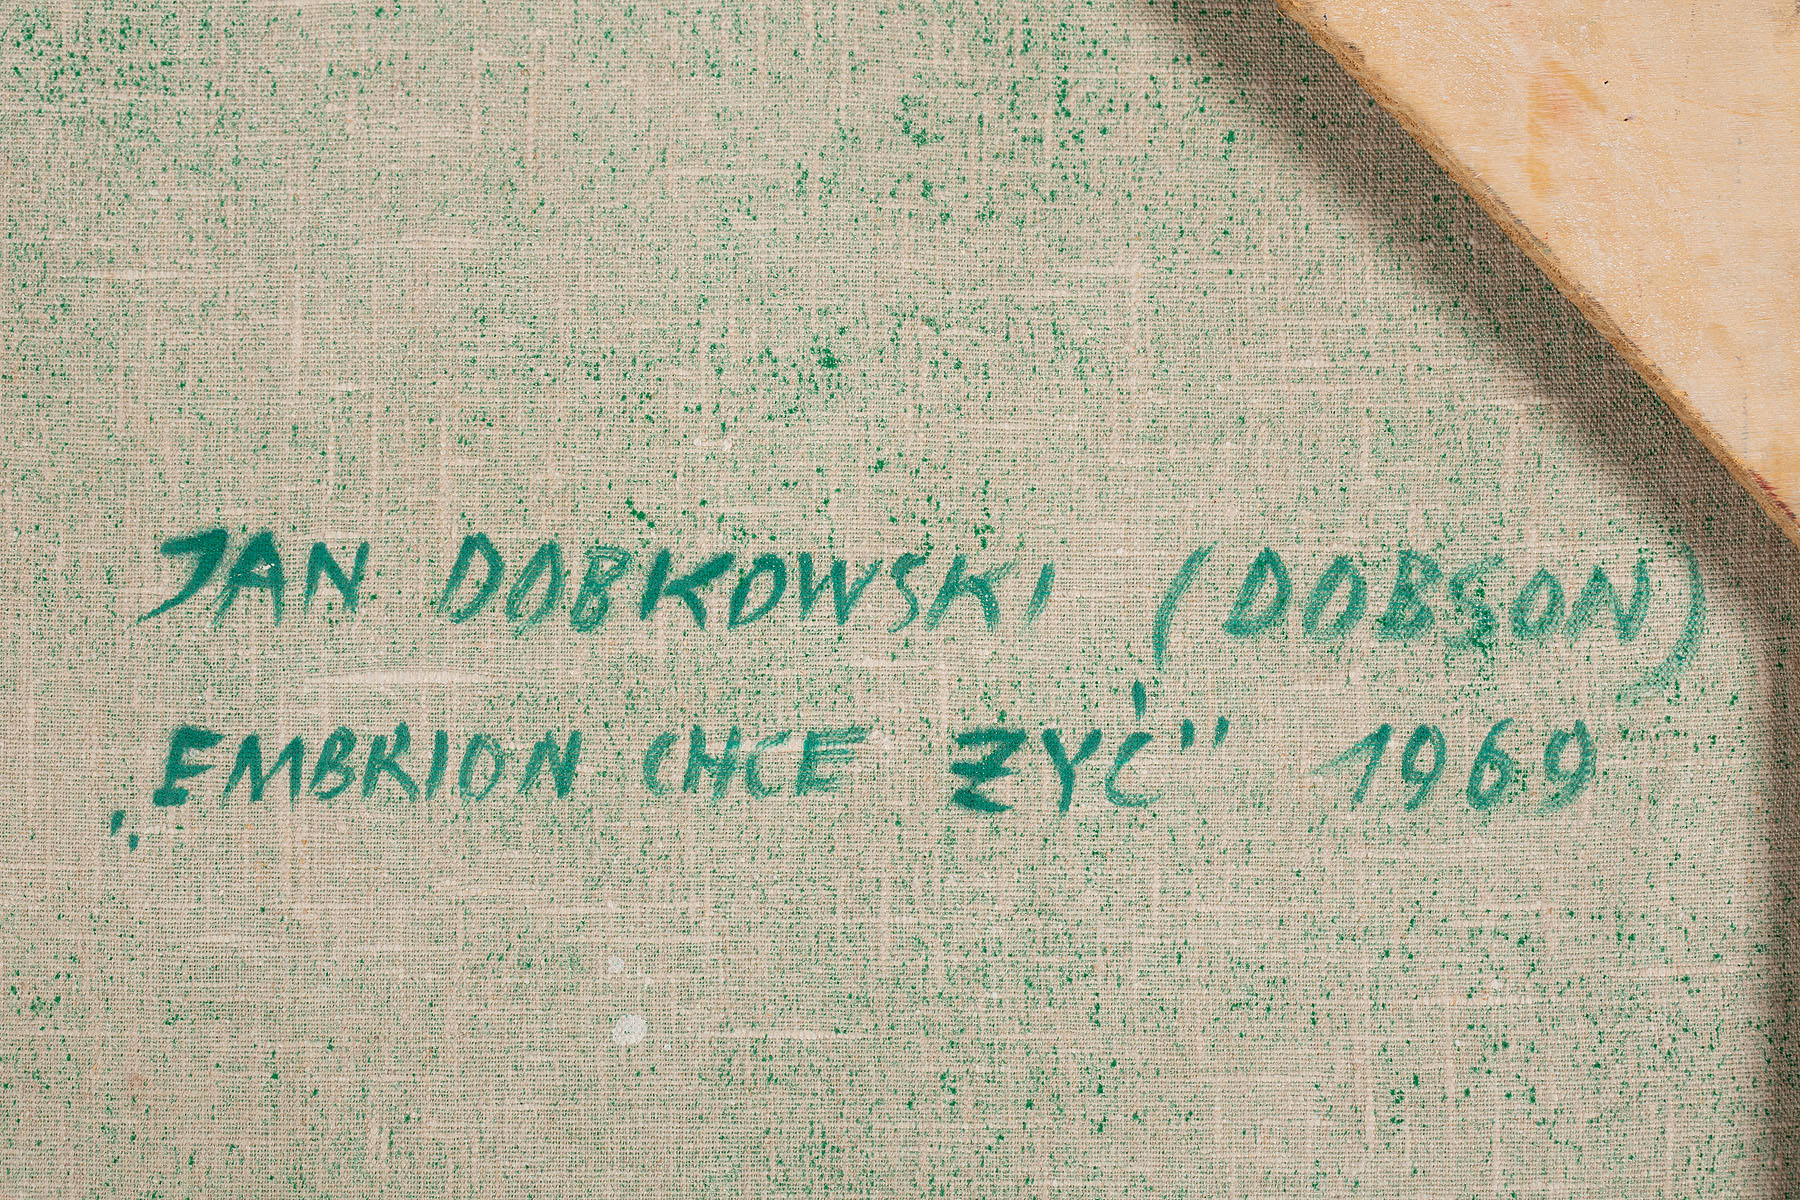 JAN DOBKOWSKI (DOBSON)
„EMBRION CHCE ŻYĆ" 1969